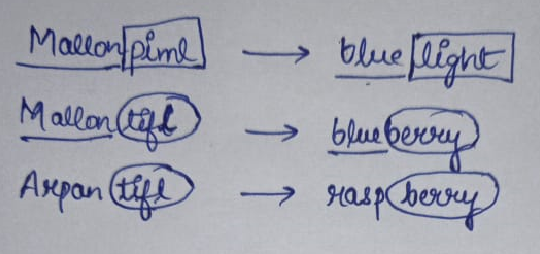 Mallonpiml → bluelight
Mallontifl → blueberry
Arpantifl → raspberry